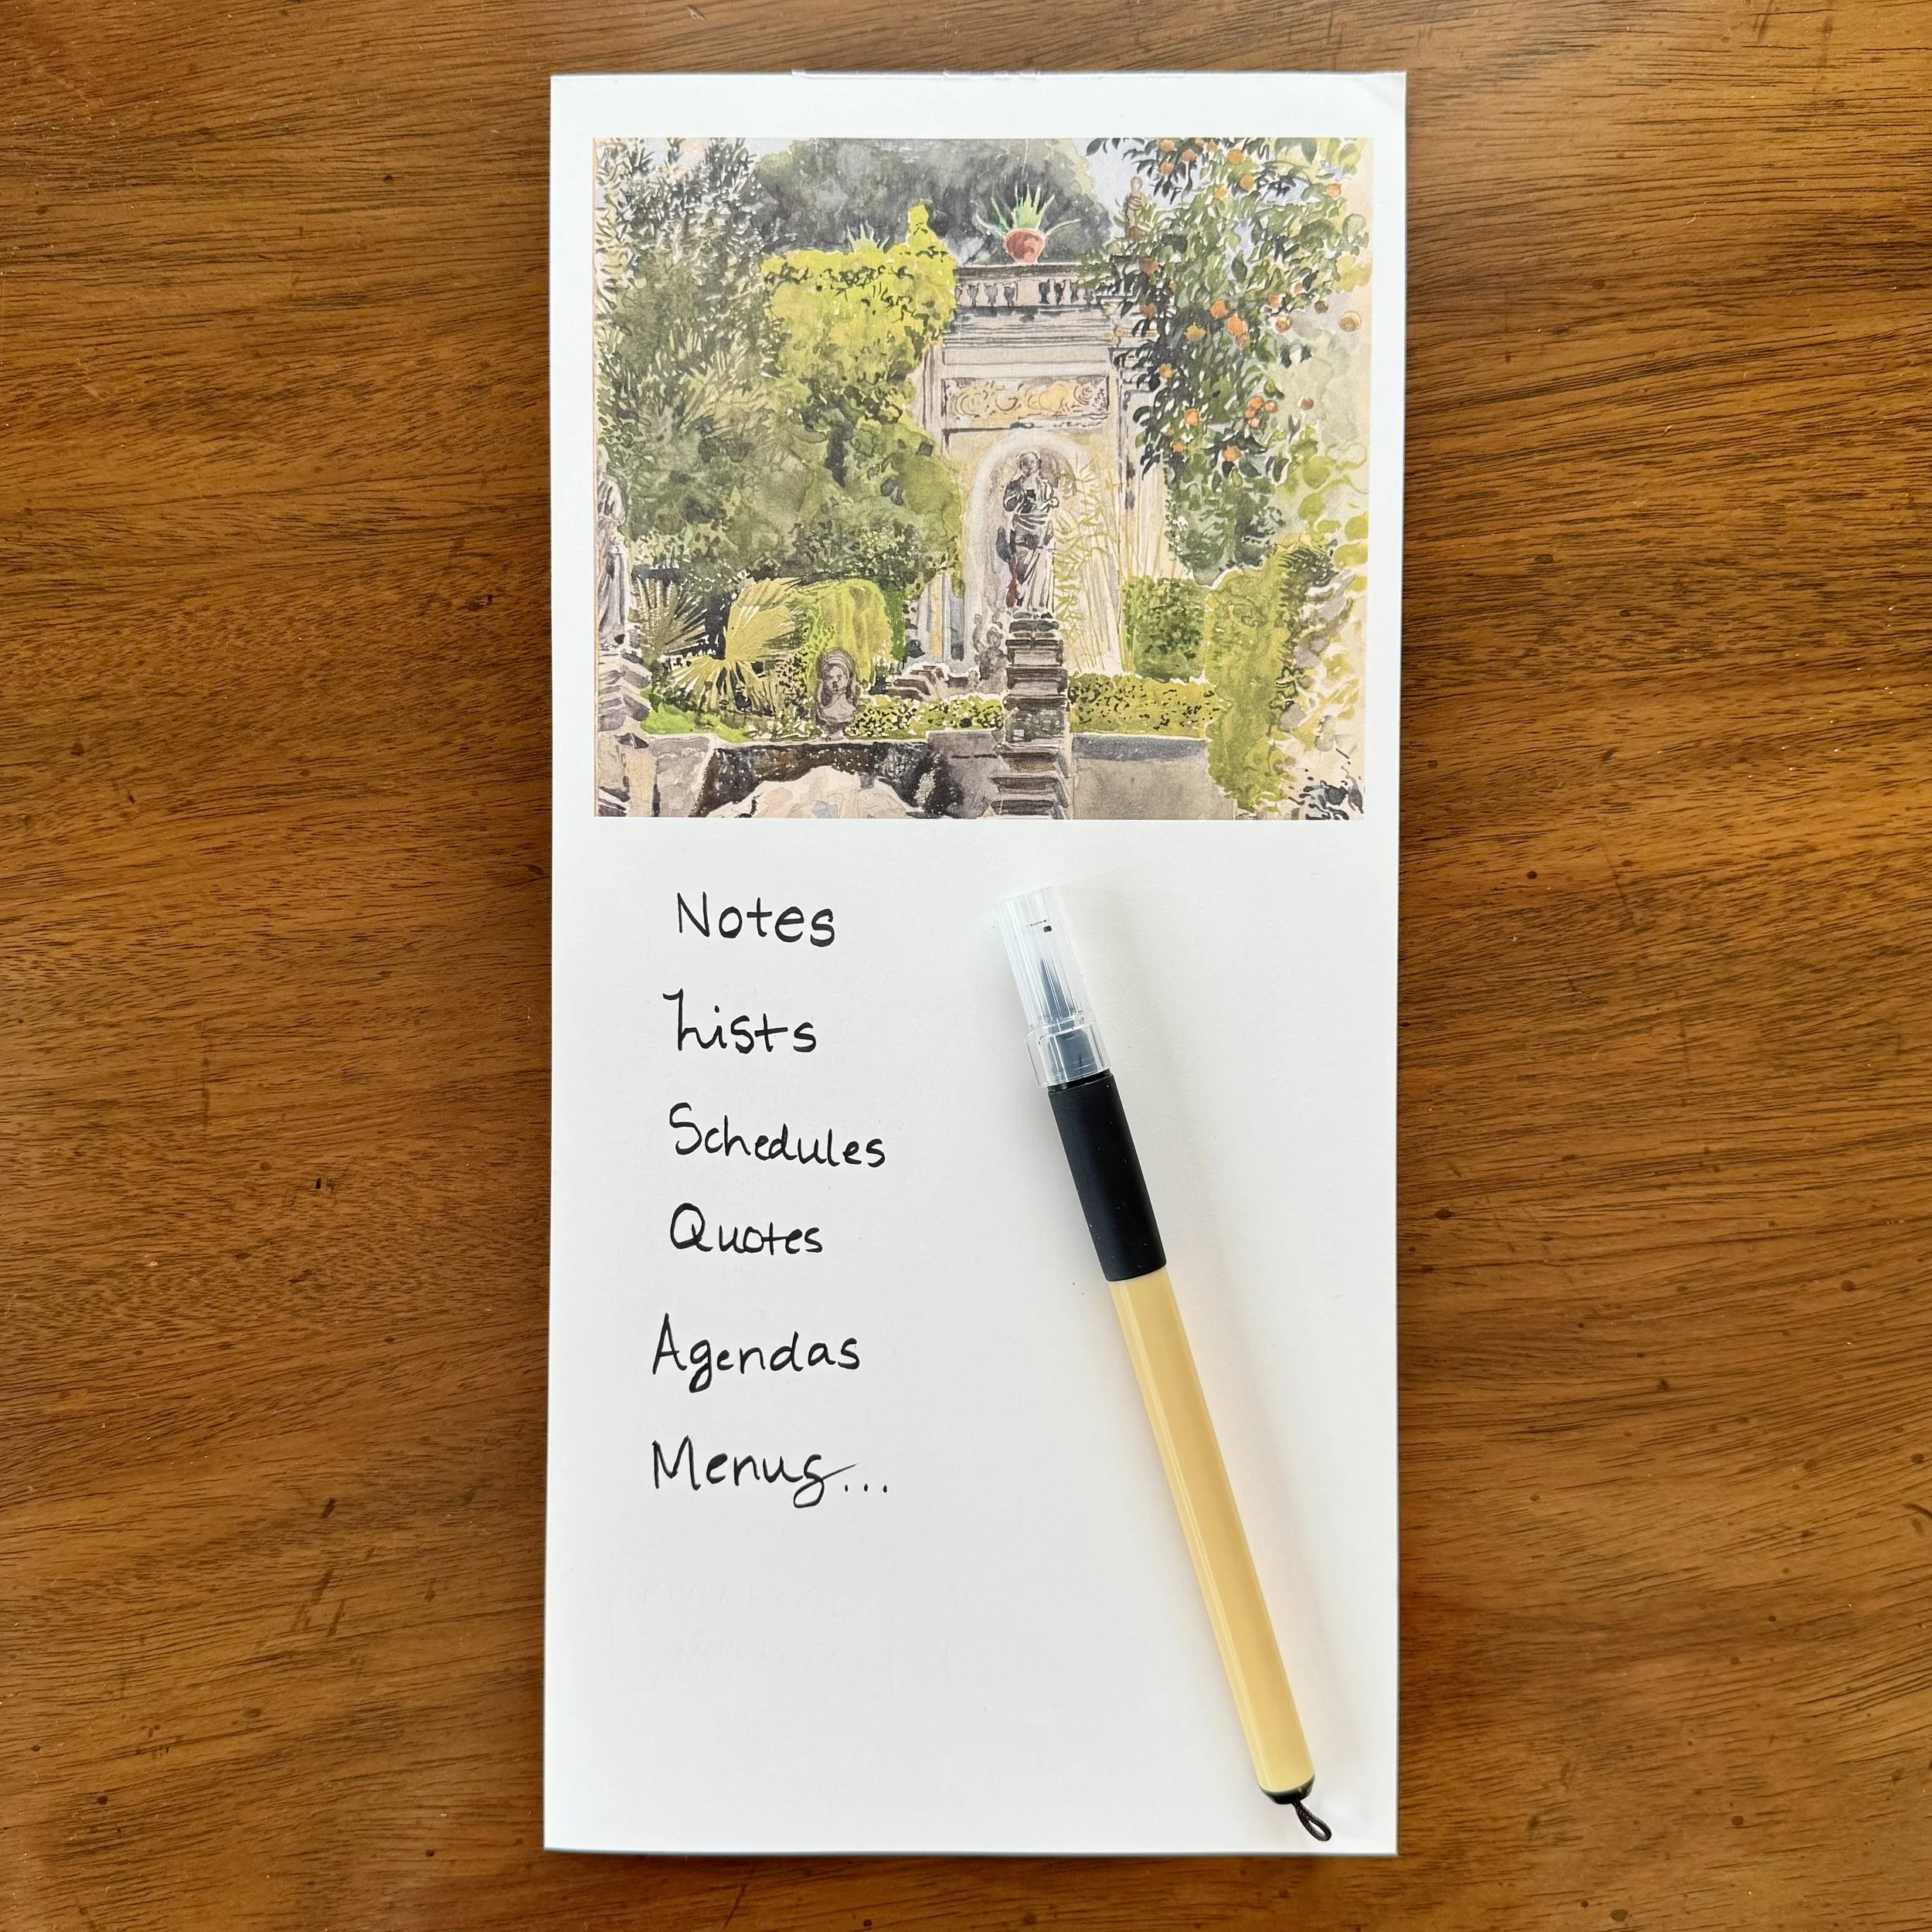 Notes
Lists
Schedules
Quotes
Agendas
Menus...